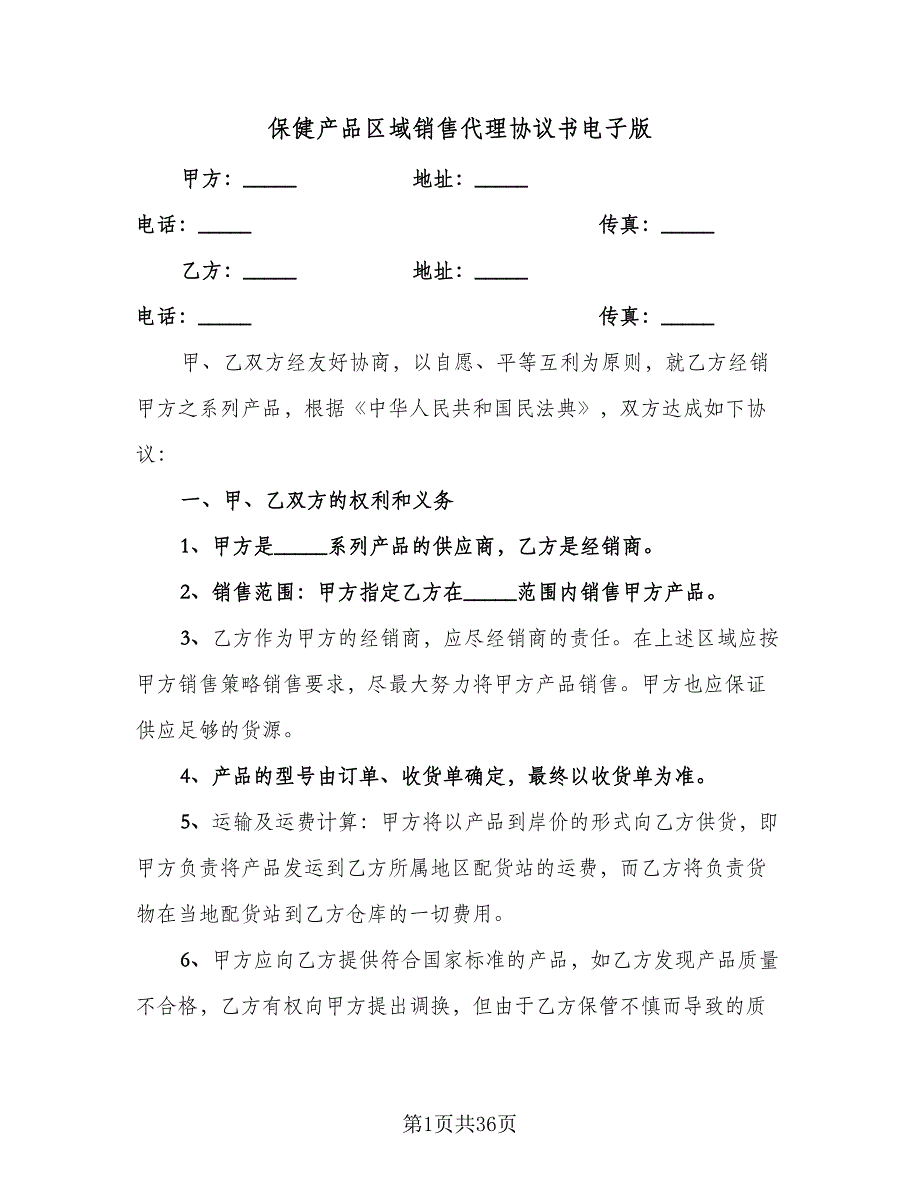 保健产品区域销售代理协议书电子版
甲方：_____ 地址：_____
电话：_____ 传真：_____
乙方：_____ 地址：_____
电话：_____ 传真：_____
甲、乙双方经友好协商，以自愿、平等互利为原则，就乙方经销
甲方之系列产品，根据《中华人民共和国民法典》，双方达成如下协
议：
一、甲、乙双方的权利和义务
1、甲方是_____系列产品的供应商，乙方是经销商。
2、销售范围：甲方指定乙方在_____范围内销售甲方产品。
3、乙方作为甲方的经销商，应尽经销商的责任。在上述区域应按
甲方销售策略销售要求，尽最大努力将甲方产品销售。甲方也应保证
供应足够的货源。
4、产品的型号由订单、收货单确定，最终以收货单为准。
5、运输及运费计算：甲方将以产品到岸价的形式向乙方供货，即
甲方负责将产品发运到乙方所属地区配货站的运费，而乙方将负责货
物在当地配货站到乙方仓库的一切费用。
6、甲方应向乙方提供符合国家标准的产品，如乙方发现产品质量
不合格，乙方有权向甲方提出调换，但由于乙方保管不慎而导致的质
第1页共36页